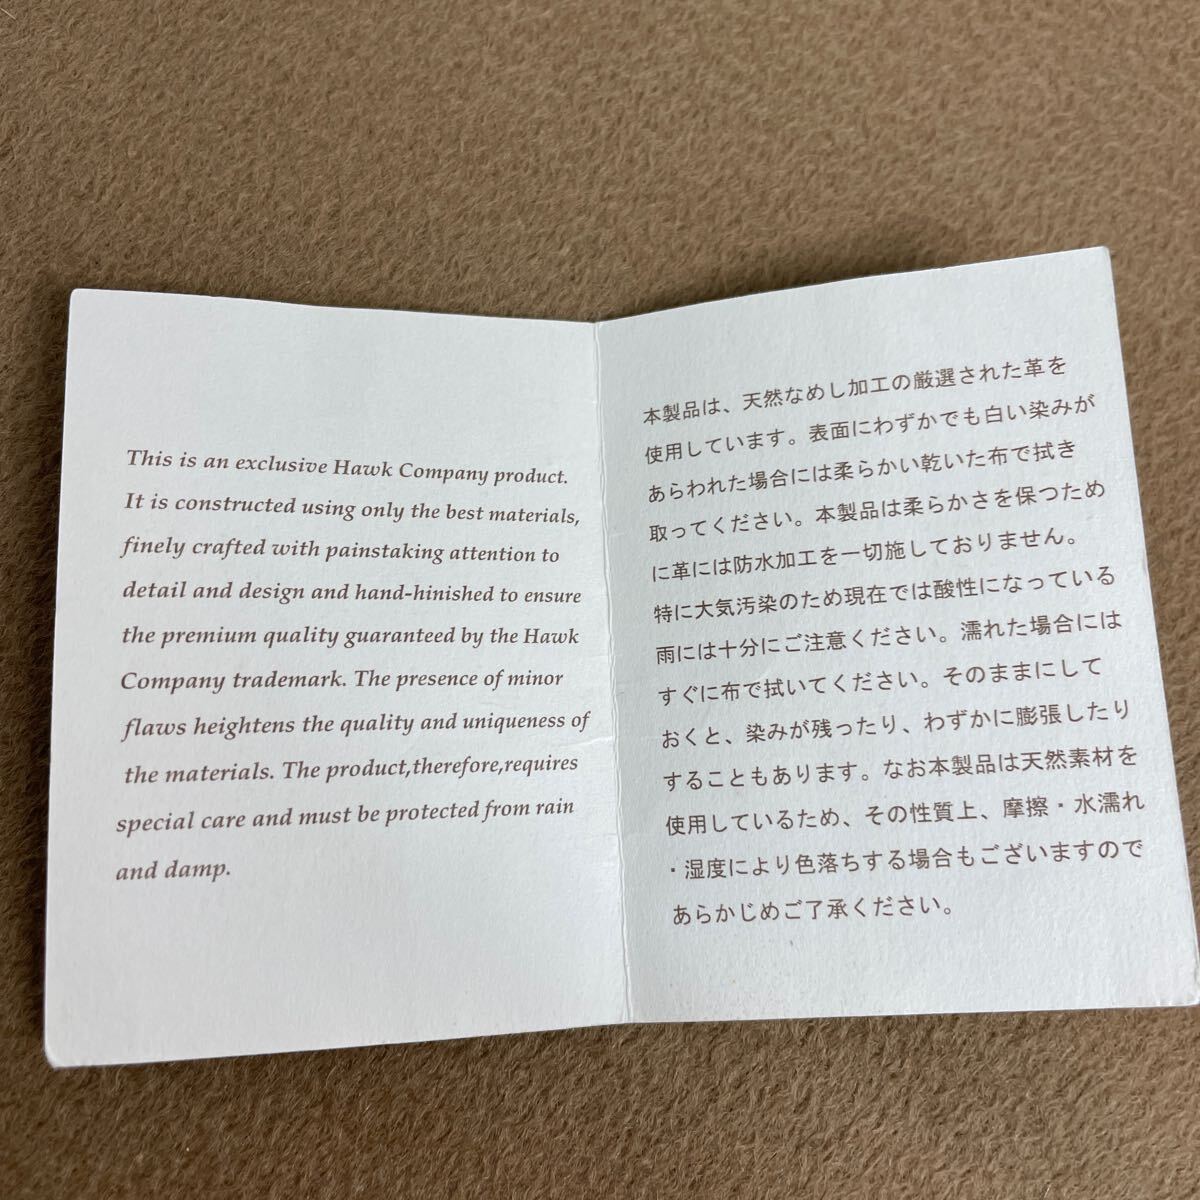 This is an exclusive Hawk Company product.
It is constructed using only the best materials,
finely crafted with painstaking attention to
detail and design and hand-hinished to ensure
the premium quality guaranteed by the Hawk
Company trademark. The presence of minor
flaws heightens the quality and uniqueness of
the materials. The product,therefore,requires
special care and must be protected from rain
and damp.
本製品は、天然なめし加工の厳選された革を
使用しています。表面にわずかでも白い染みが
あらわれた場合には柔らかい乾いた布で拭き
取ってください。本製品は柔らかさを保つため
に革には防水加工を一切施しておりません。
特に大気汚染のため現在では酸性になっている
雨には十分にご注意ください。濡れた場合には
すぐに布で拭いてください。そのままにして
おくと、染みが残ったり、わずかに膨張したり
することもあります。なお本製品は天然素材を
使用しているため、その性質上、摩擦・水濡れ
・湿度により色落ちする場合もございますので
あらかじめご了承ください。